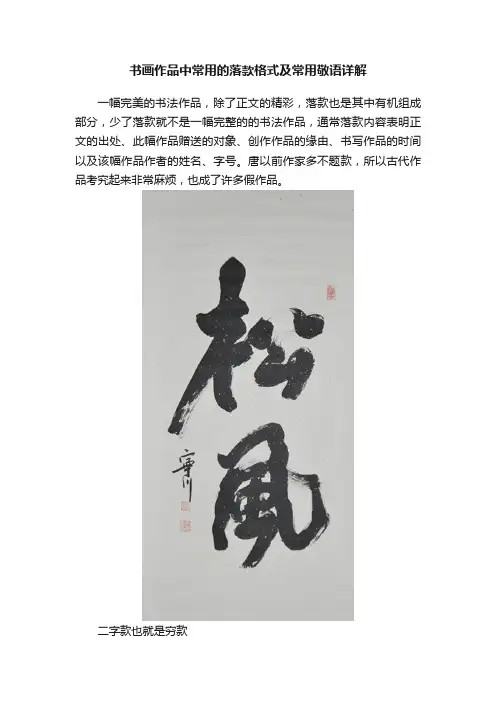 书画作品中常用的落款格式及常用敬语详解
一幅完美的书法作品，除了正文的精彩，落款也是其中有机组成
部分，少了落款就不是一幅完整的的书法作品，通常落款内容表明正
文的出处、此幅作品赠送的对象、创作作品的缘由、书写作品的时间
以及该幅作品作者的姓名、字号。唐以前作家多不题款，所以古代作
品考究起来非常麻烦，也成了许多假作品。
松風
川
二字款也就是穷款